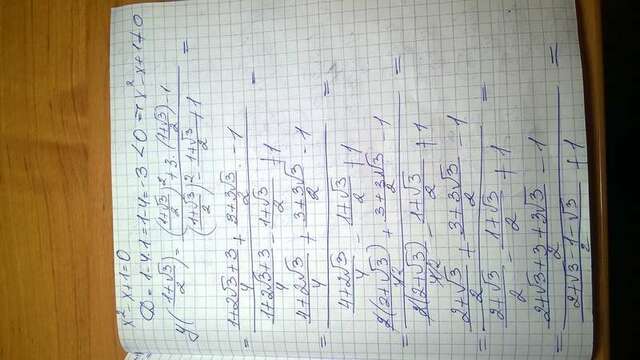 x² - x + 1 = 0
D = 1 - 4·1 = 1 - 4 = -3 < 0 ⇒ x² - x + 1 ≠ 0
y((1+√3)/2) = (((1+√3)/2)² + 3·((1+√3)/2) - 1)/(((1+√3)/2)² - (1+√3)/2 + 1) =
= ((1+2√3+3)/4 + (3+3√3)/2 - 1)/((1+2√3+3)/4 - (1+√3)/2 + 1) =
= ((4+2√3)/4 + (3+3√3)/2 - 1)/((4+2√3)/4 - (1+√3)/2 + 1) =
= (2(2+√3)/4 2 + (3+3√3)/2 - 1)/(2(2+√3)/4 2 - (1+√3)/2 + 1) =
= ((2+√3)/2 + (3+3√3)/2 - 1)/((2+√3)/2 - (1+√3)/2 + 1) =
= ((2+√3+3+3√3)/2 - 1)/((2+√3-1-√3)/2 + 1) =